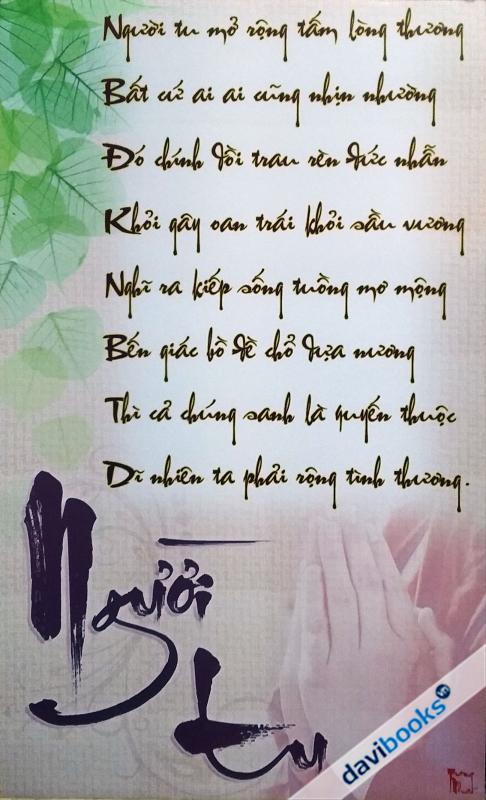 Người tu mở rộng tấm lòng thương
Bất cứ ai ai cũng nhịn nhường
Đó chính dồi trau rèn đức nhẫn
Khỏi gây oan trái khỏi sầu vương
Nghĩ ra kiếp sống tuồng mơ mộng
Bến giác bồ đề chổ dựa nương
Thì cả chúng sanh là quyến thuộc
Dĩ nhiên ta phải rộng tình thương.
Người
Tu
davibooks.vn